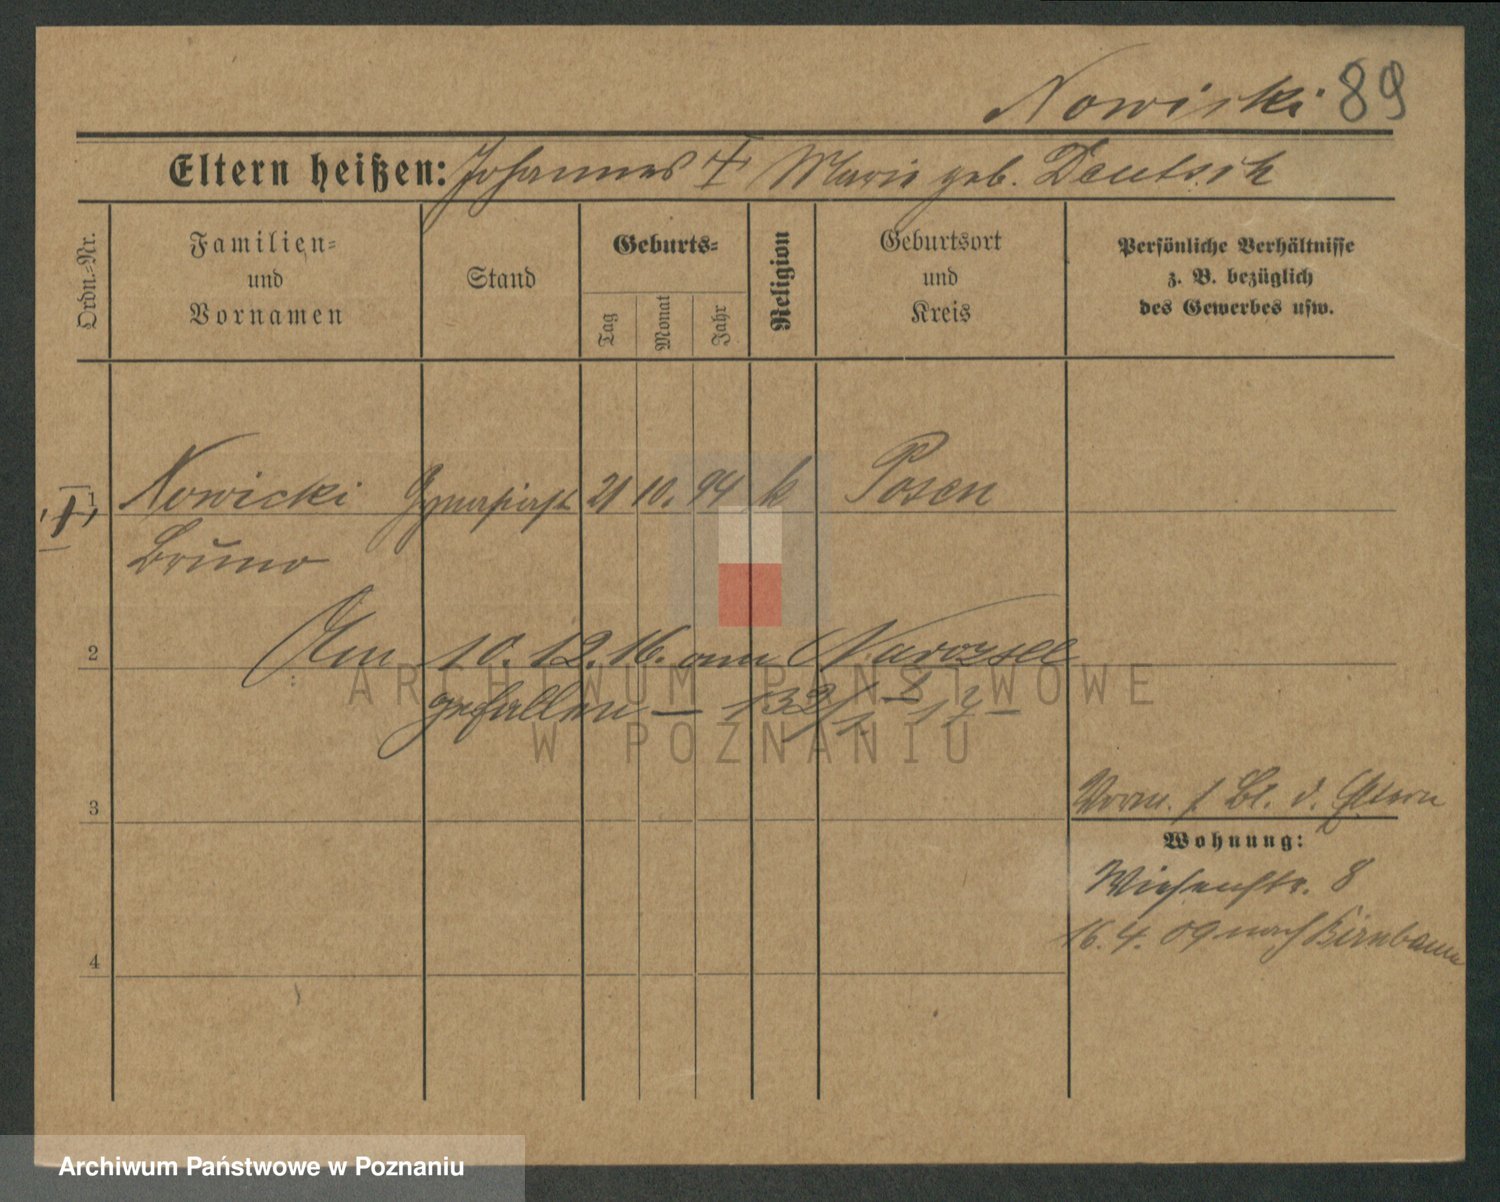 Nowicki 89
Eltern heißen: Johannes † Marie geb. Deutsch
Ordn.-Nr.
Familien-
und
Vornamen
Stand
Geburts-
Tag
Monat
Jahr
Religion
Geburtsort
und
Kreis
Persönliche Verhältnisse
z. B. bezüglich
des Gewerbes usw.
1 Nowicki Gymnasiast 21 10. 94 k Posen
Bruno
2 Am 10. 12. 16. am
gefallen — 132/1 17 —
3
4
Verm. f. Bl. d. Eltern
Wohnung:
Wiesenstr. 8
16. 4. 09 nach Birnbaum
ARCHIWUM PAŃSTWOWE
W POZNANIU
Archiwum Państwowe w Poznaniu